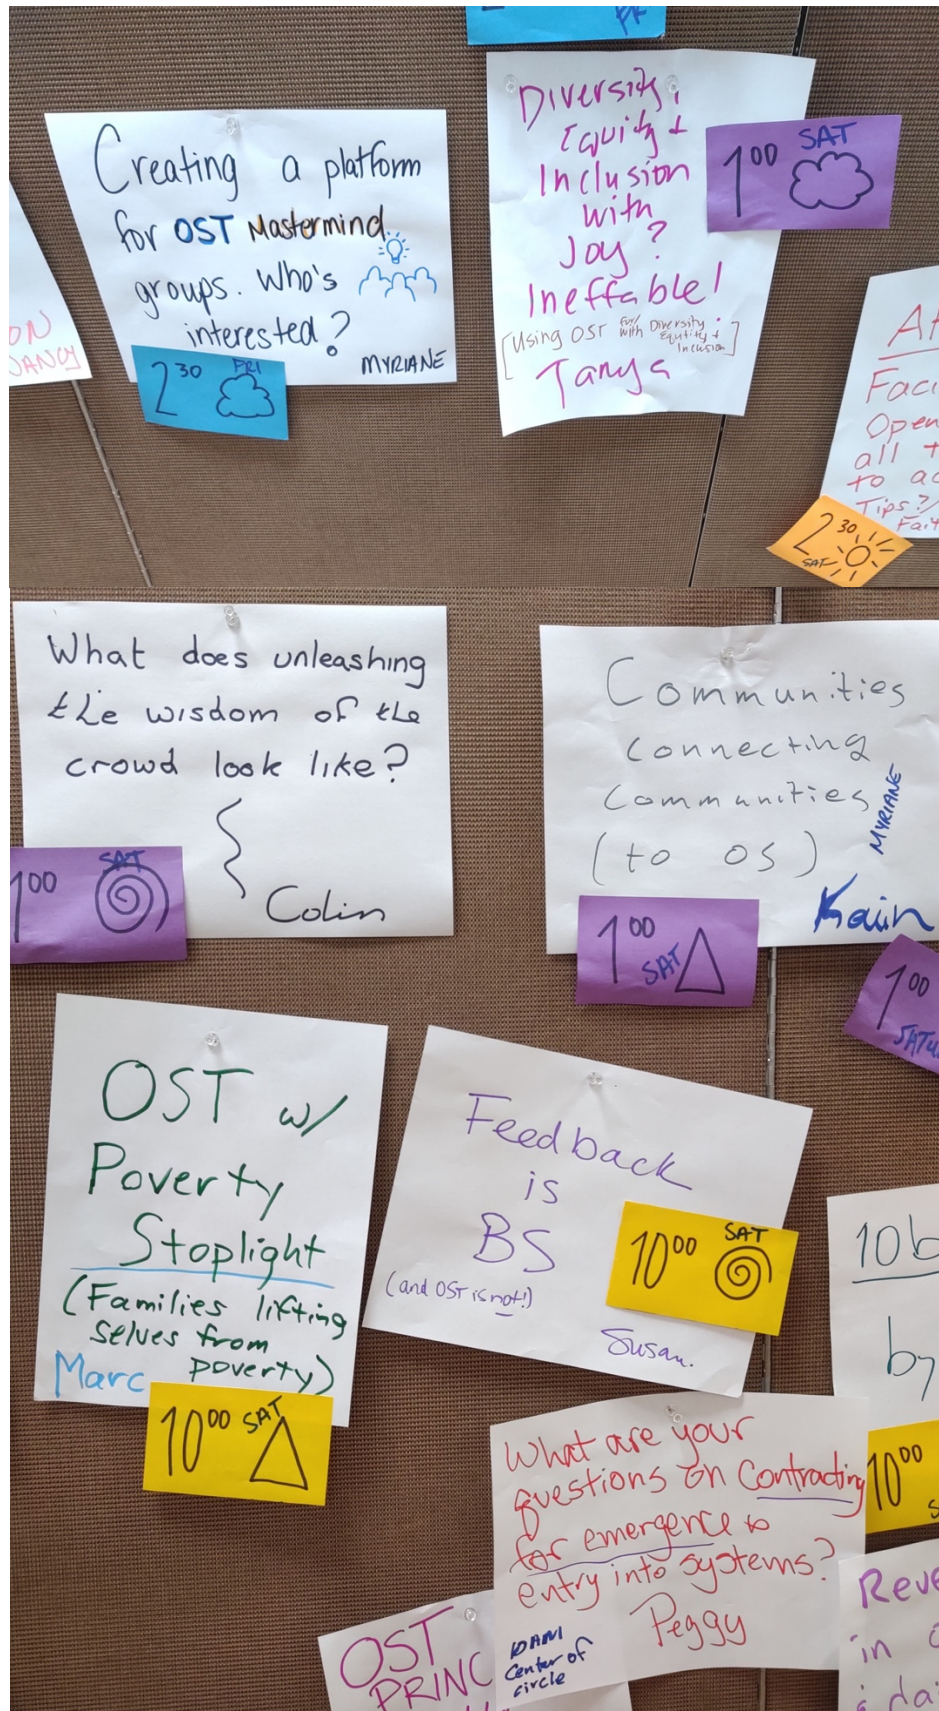 PR
Creating a platform
for OST Mastermind
groups. Who's
interested?
MYRIANE
2 30 FRI
Diversity,
Equity +
Inclusion
with
Joy?
Ineffable!
[Using OST for/with Diversity, Equitity + Inclusion]
Tanya
1 00 SAT
ON
NANCY
Faci
Open
all t
to ac
Tips?/
Fait
2 30
SAT
What does unleashing
the wisdom of the
crowd look like?
Colin
1 00 SAT
Communities
connecting
Communities
(to OS)
MYRIANE
Kain
1 00
SAT
1 00
SATU
OST w/
Poverty
Stoplight
(Families lifting
selves from
poverty)
Marc
10 00 SAT
Feedback
is
BS
(and OST is not!)
Susan.
10 00 SAT
10 b
by
10 00
S
What are your
questions on Contracting
for emergence &
entry into systems?
Peggy
10AM
Center of
circle
OST
PRINC
Reve
in